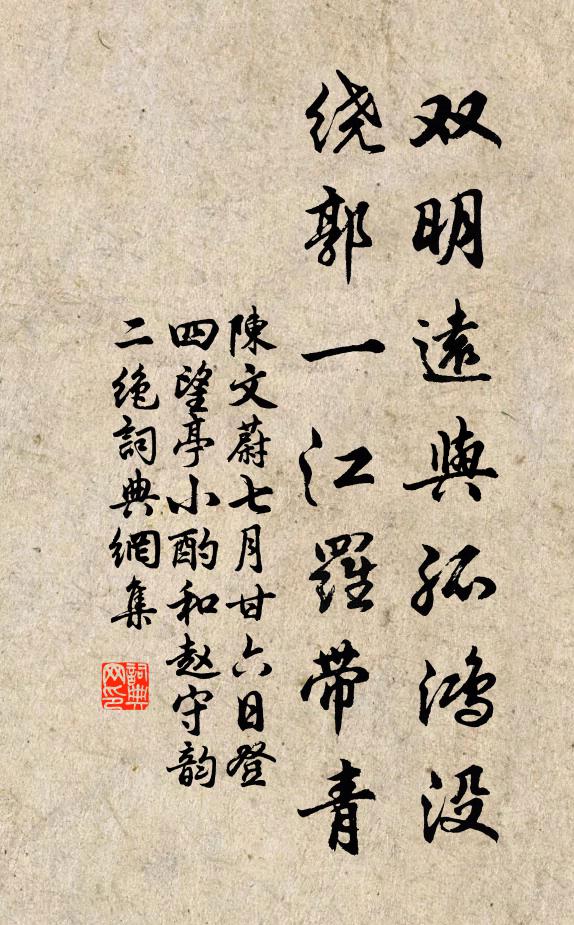 双明遠與孤鴻没
绕郭一江羅带青
陳文蔚七月廿六日登
四望亭小酌和赵守韵
二绝詞典網集
詞典
网印